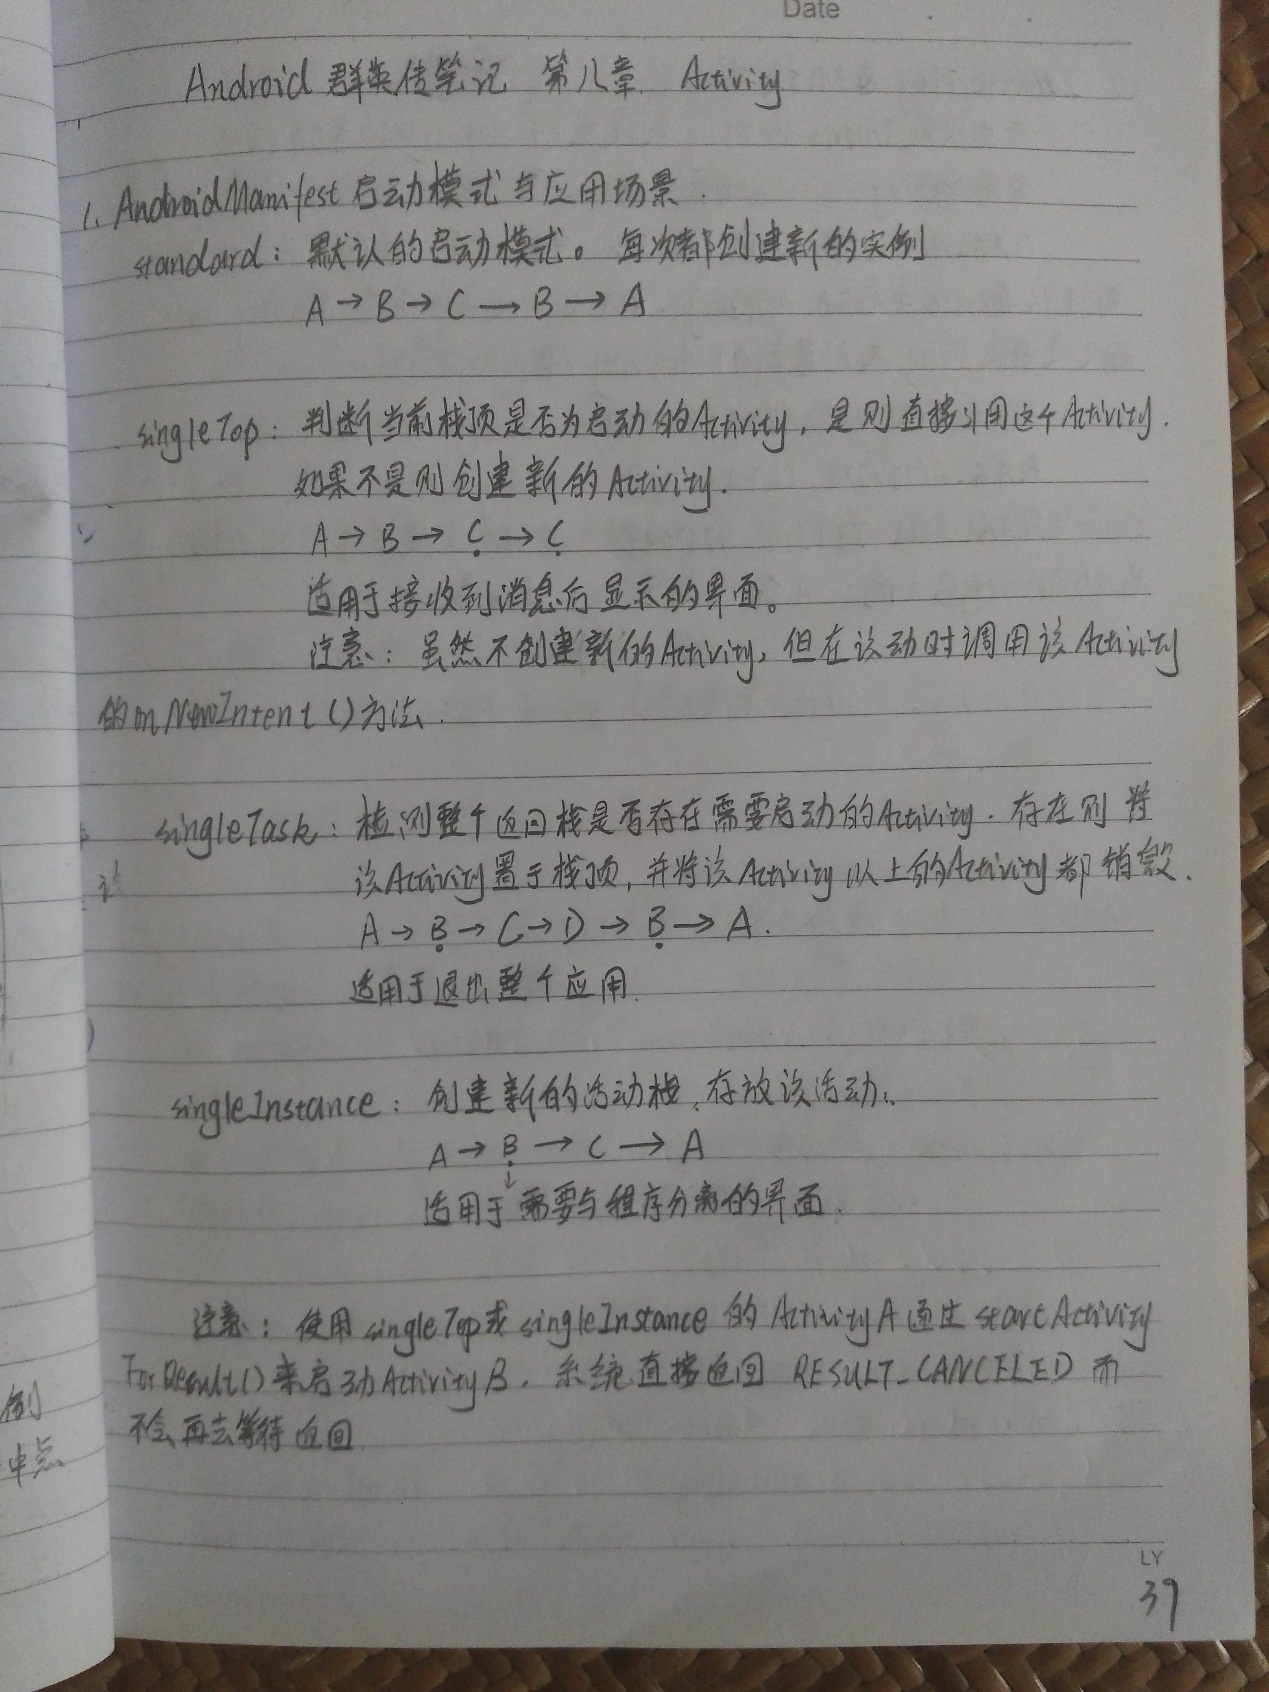 Date
Android 群英传笔记 第八章 Activity
1. AndroidManifest启动模式与应用场景.
standard: 默认的启动模式。每次都创建新的实例
A → B → C → B → A
singleTop: 判断当前栈顶是否为启动的Activity, 是则直接引用这个Activity.
如果不是则创建新的Activity.
A → B → C → C
适用于接收到消息后显示的界面。
注意: 虽然不创建新的Activity, 但在该动时调用该Activity
的onNewIntent()方法.
singleTask: 检测整个返回栈是否存在需要启动的Activity. 存在则将
该Activity置于栈顶, 并将该Activity以上的Activity都销毁.
A → B → C → D → B → A.
适用于退出整个应用.
singleInstance: 创建新的活动栈, 存放该活动.
A → B → C → A
↓
适用于需要与程序分离的界面.
注意: 使用singleTop或singleInstance的ActivityA通过startActivity
ForResult()来启动ActivityB. 系统直接返回 RESULT_CANCELED 而
不会再去等待返回
例
中点
该
LY
39